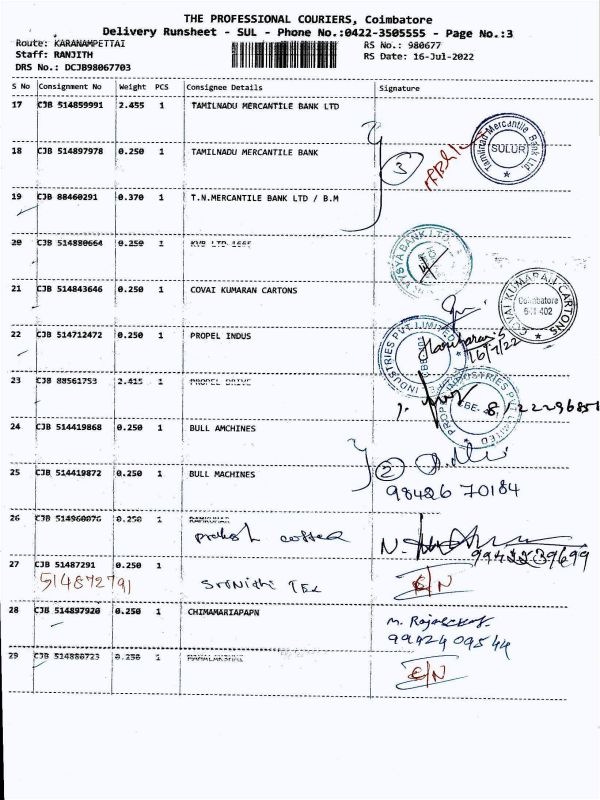 THE PROFESSIONAL COURIERS, Coimbatore
Delivery Runsheet - SUL - Phone No.:0422-3505555 - Page No.:3
Route: KARANAMPETTAI RS No.: 980677
Staff: RANJITH RS Date: 16-Jul-2022
DRS No.: DCJB98067703
S No Consignment No Weight PCS Consignee Details Signature
17 CJB 514859991 2.455 1 TAMILNADU MERCANTILE BANK LTD
Tamilnad Mercantile Bank Ltd SULUR
18 CJB 514897978 0.250 1 TAMILNADU MERCANTILE BANK
3
19 CJB 88460291 0.370 1 T.N.MERCANTILE BANK LTD / B.M
20 CJB 514880664 0.250 1 KVB LTD 1665
VYSYA BANK LTD.
21 CJB 514843646 0.250 1 COVAI KUMARAN CARTONS
COVAI KUMARAN CARTONS Coimbatore 641 402
22 CJB 514712472 0.250 1 PROPEL INDUS
INDUSTRIES PVT. LIMITED
Hariharan.S
16/7/22
23 CJB 88561753 2.415 1 PROPEL DRIVE
PROPEL INDUSTRIES PVT LIMITED
24 CJB 514419868 0.250 1 BULL AMCHINES
2
25 CJB 514419872 0.250 1 BULL MACHINES
98426 70184
26 CJB 514960076 0.250 1 RAMKUMAR
27 CJB 51487291 0.250 1
514872791 Srinidhi Tex
28 CJB 514897920 0.250 1 CHIMAMARIAPAPN
99424 09544
29 CJB 514880723 0.250 1 MAHALAKSHMI